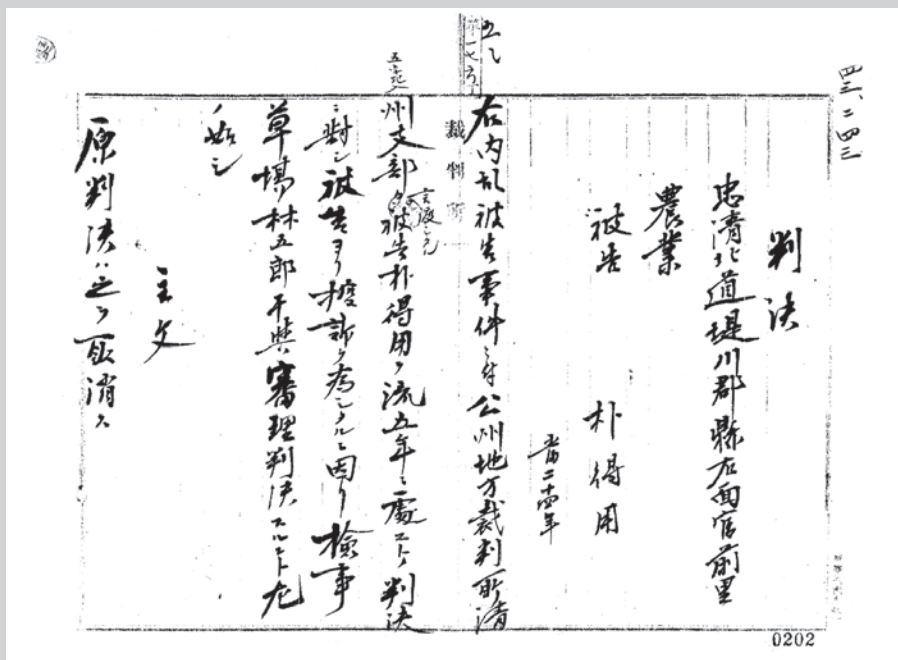 四三、二四三
判決
忠清北道堤川郡縣右面官前里
農業
被告 朴得用
當二十四年
右内乱被告事件ニ付公州地方裁判所清
州支部カ被告朴得用ヲ流五年ニ處ストノ判決
ニ對シ被告ヨリ控訴ヲ為シタルニ因リ検事
草場林五郎干與審理判決スルコト左
ノ如シ
主文
原判決ハ之ヲ取消ス
裁判所
0202